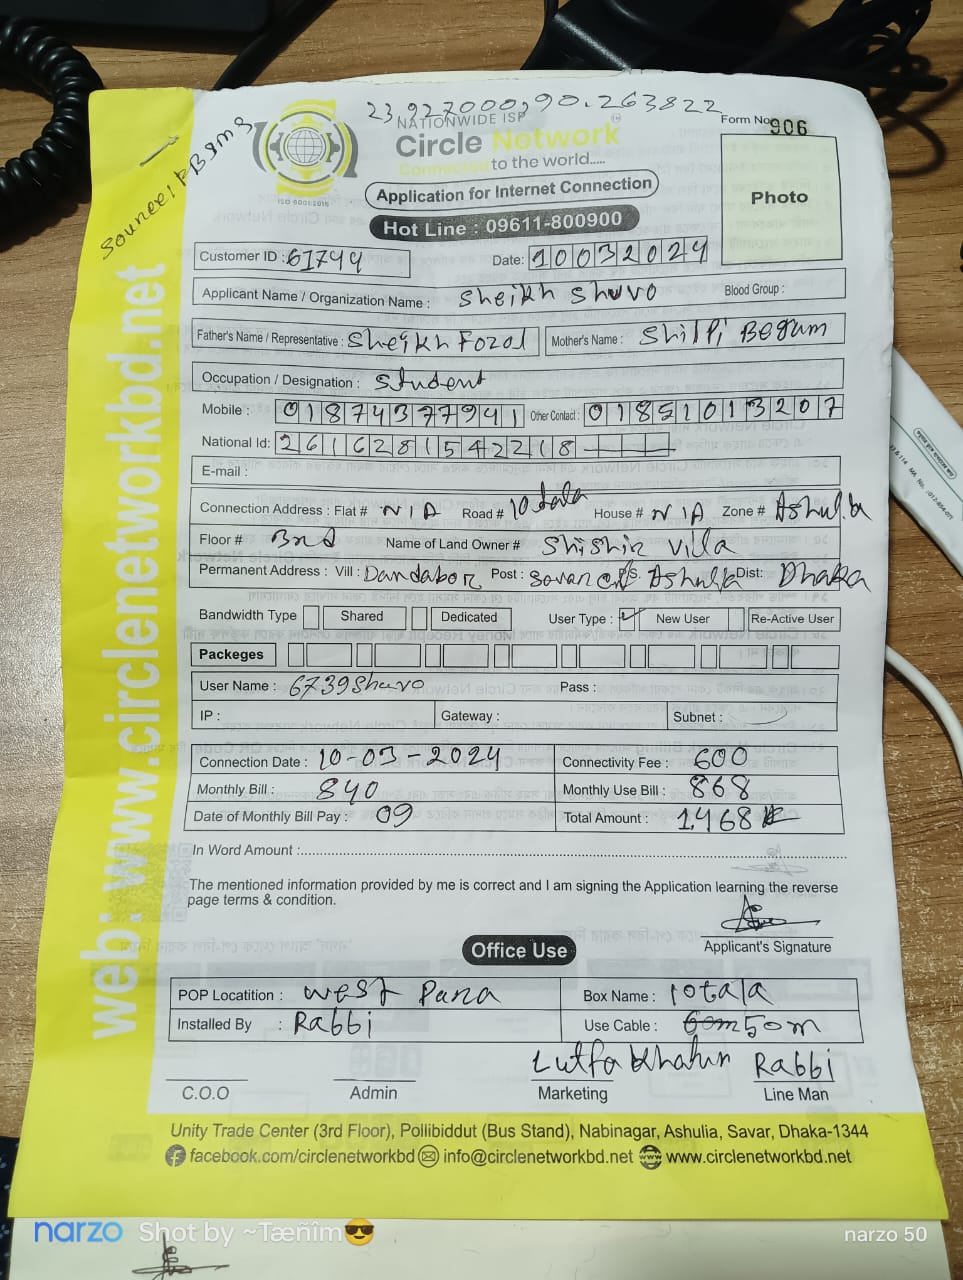 23.927000,90.263822
NATIONWIDE ISP
Circle Network
Connected to the world.....
ISO 9001:2015
Form No 906
Photo
Application for Internet Connection
Hot Line : 09611-800900
Customer ID : 61744 Date: 10032024
Applicant Name / Organization Name : Sheikh Shuvo Blood Group :
Father's Name / Representative : Sheikh Fozol Mother's Name : Shilpi Begum
Occupation / Designation : Student
Mobile : 01874377941 Other Contact : 01851013207
National Id: 26116281542218
E-mail :
Connection Address : Flat # N/A Road # 10tala House # N/A Zone # Ashulia
Floor # 3rd Name of Land Owner # Shishir villa
Permanent Address : Vill : Dandabor Post : Savar P.S. Ashulia Dist: Dhaka
Bandwidth Type Shared Dedicated User Type : New User Re-Active User
Packeges
User Name : 6739Shuvo Pass :
IP : Gateway : Subnet :
Connection Date : 10-03-2024 Connectivity Fee : 600
Monthly Bill : 840 Monthly Use Bill : 868
Date of Monthly Bill Pay : 09 Total Amount : 1468
In Word Amount :
The mentioned information provided by me is correct and I am signing the Application learning the reverse
page terms & condition.
Applicant's Signature
Office Use
POP Locatition : West Para Box Name : 10tala
Installed By : Rabbi Use Cable : 60m 50m
Lutfa Khatun Rabbi
C.O.O Admin Marketing Line Man
Unity Trade Center (3rd Floor), Pollibiddut (Bus Stand), Nabinagar, Ashulia, Savar, Dhaka-1344
facebook.com/circlenetworkbd info@circlenetworkbd.net www.circlenetworkbd.net
web: www.circlenetworkbd.net
narzo Shot by ~Tæñîm😎 narzo 50